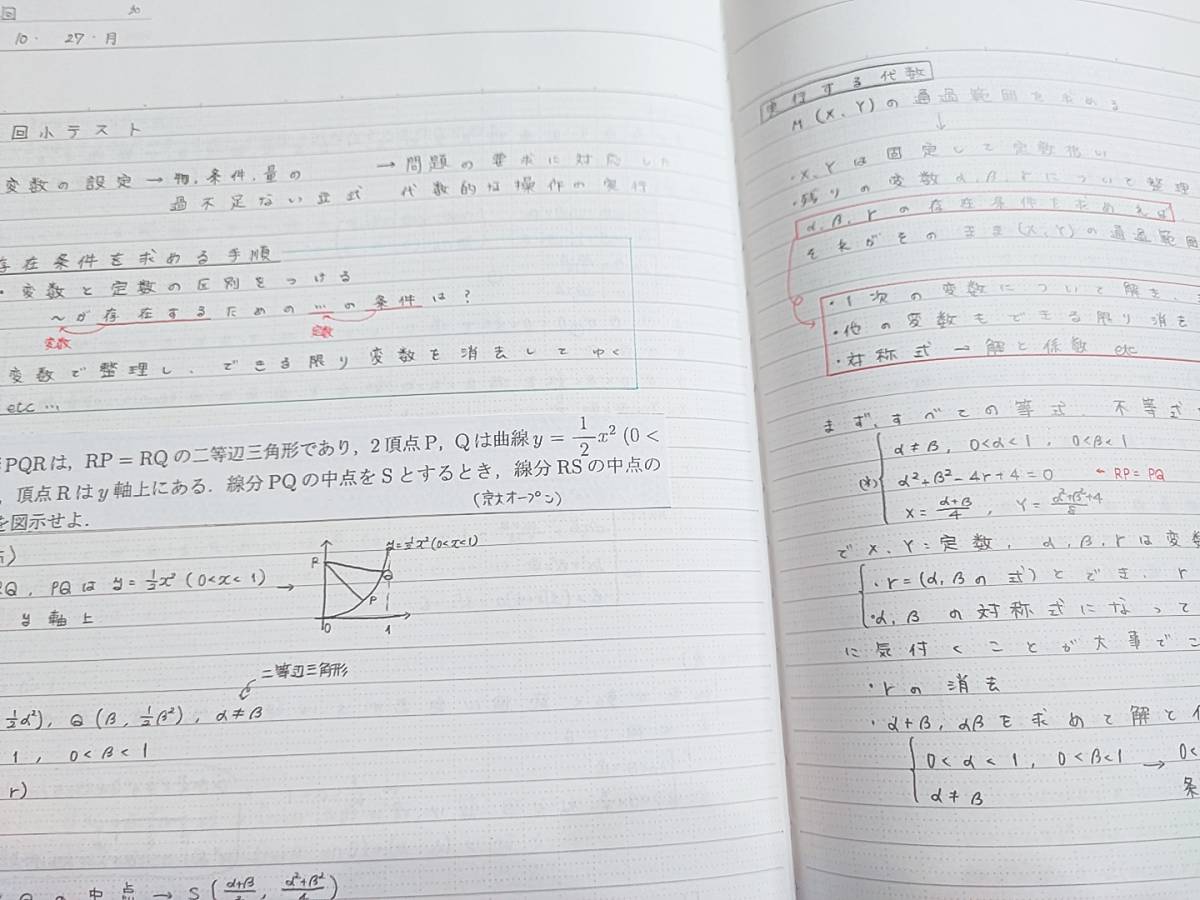 回
10・ 27・月
回小テスト
変数の設定 → 物、条件、量の → 問題の要求に対応した
過不足ない立式 代数的な操作の実行
存在条件を求める手順
・変数と定数の区別をつける
〜が存在するための…の条件は?
変数 定数
変数で整理し、できる限り変数を消去してゆく
etc…
PQRは,RP=RQの二等辺三角形であり,2頂点P,Qは曲線y=1/2x² (0<
,頂点Rはy軸上にある.線分PQの中点をSとするとき,線分RSの中点の
を図示せよ.
(京大オープン)
y=1/2x²(0<x<1)
R
Q
P
0 1
PQは y=1/2x² (0<x<1) →
y軸上
二等辺三角形
1/2α²), Q (β, 1/2β²), α≠β
1, 0<β<1
r)
の中点 → S(α+β/2, α²+β²/4)
実行する代数
M(X、Y)の通過範囲を求める
↓
・X、Yは固定して定数扱い
・残りの変数α、β、rについて整理
α、β、rの存在条件を求めれば
それがそのまま(X、Y)の通過範囲
・1次の変数について解き、
・他の変数もできる限り消去
・対称式 → 解と係数 etc
まず、すべての等式、不等式
(*) α≠β, 0<α<1, 0<β<1
α²+β²-4r+4=0 ← RP=PQ
X=α+β/4, Y=α²+β²+4/8
でX、Y=定数、α、β、rは変数
・r=(α、βの式)とでき、r
・α、βの対称式になって
に気付くことが大事で
・rの消去
・α+β, αβを求めて解と
0<α<1, 0<β<1 → 0<
α≠β 条